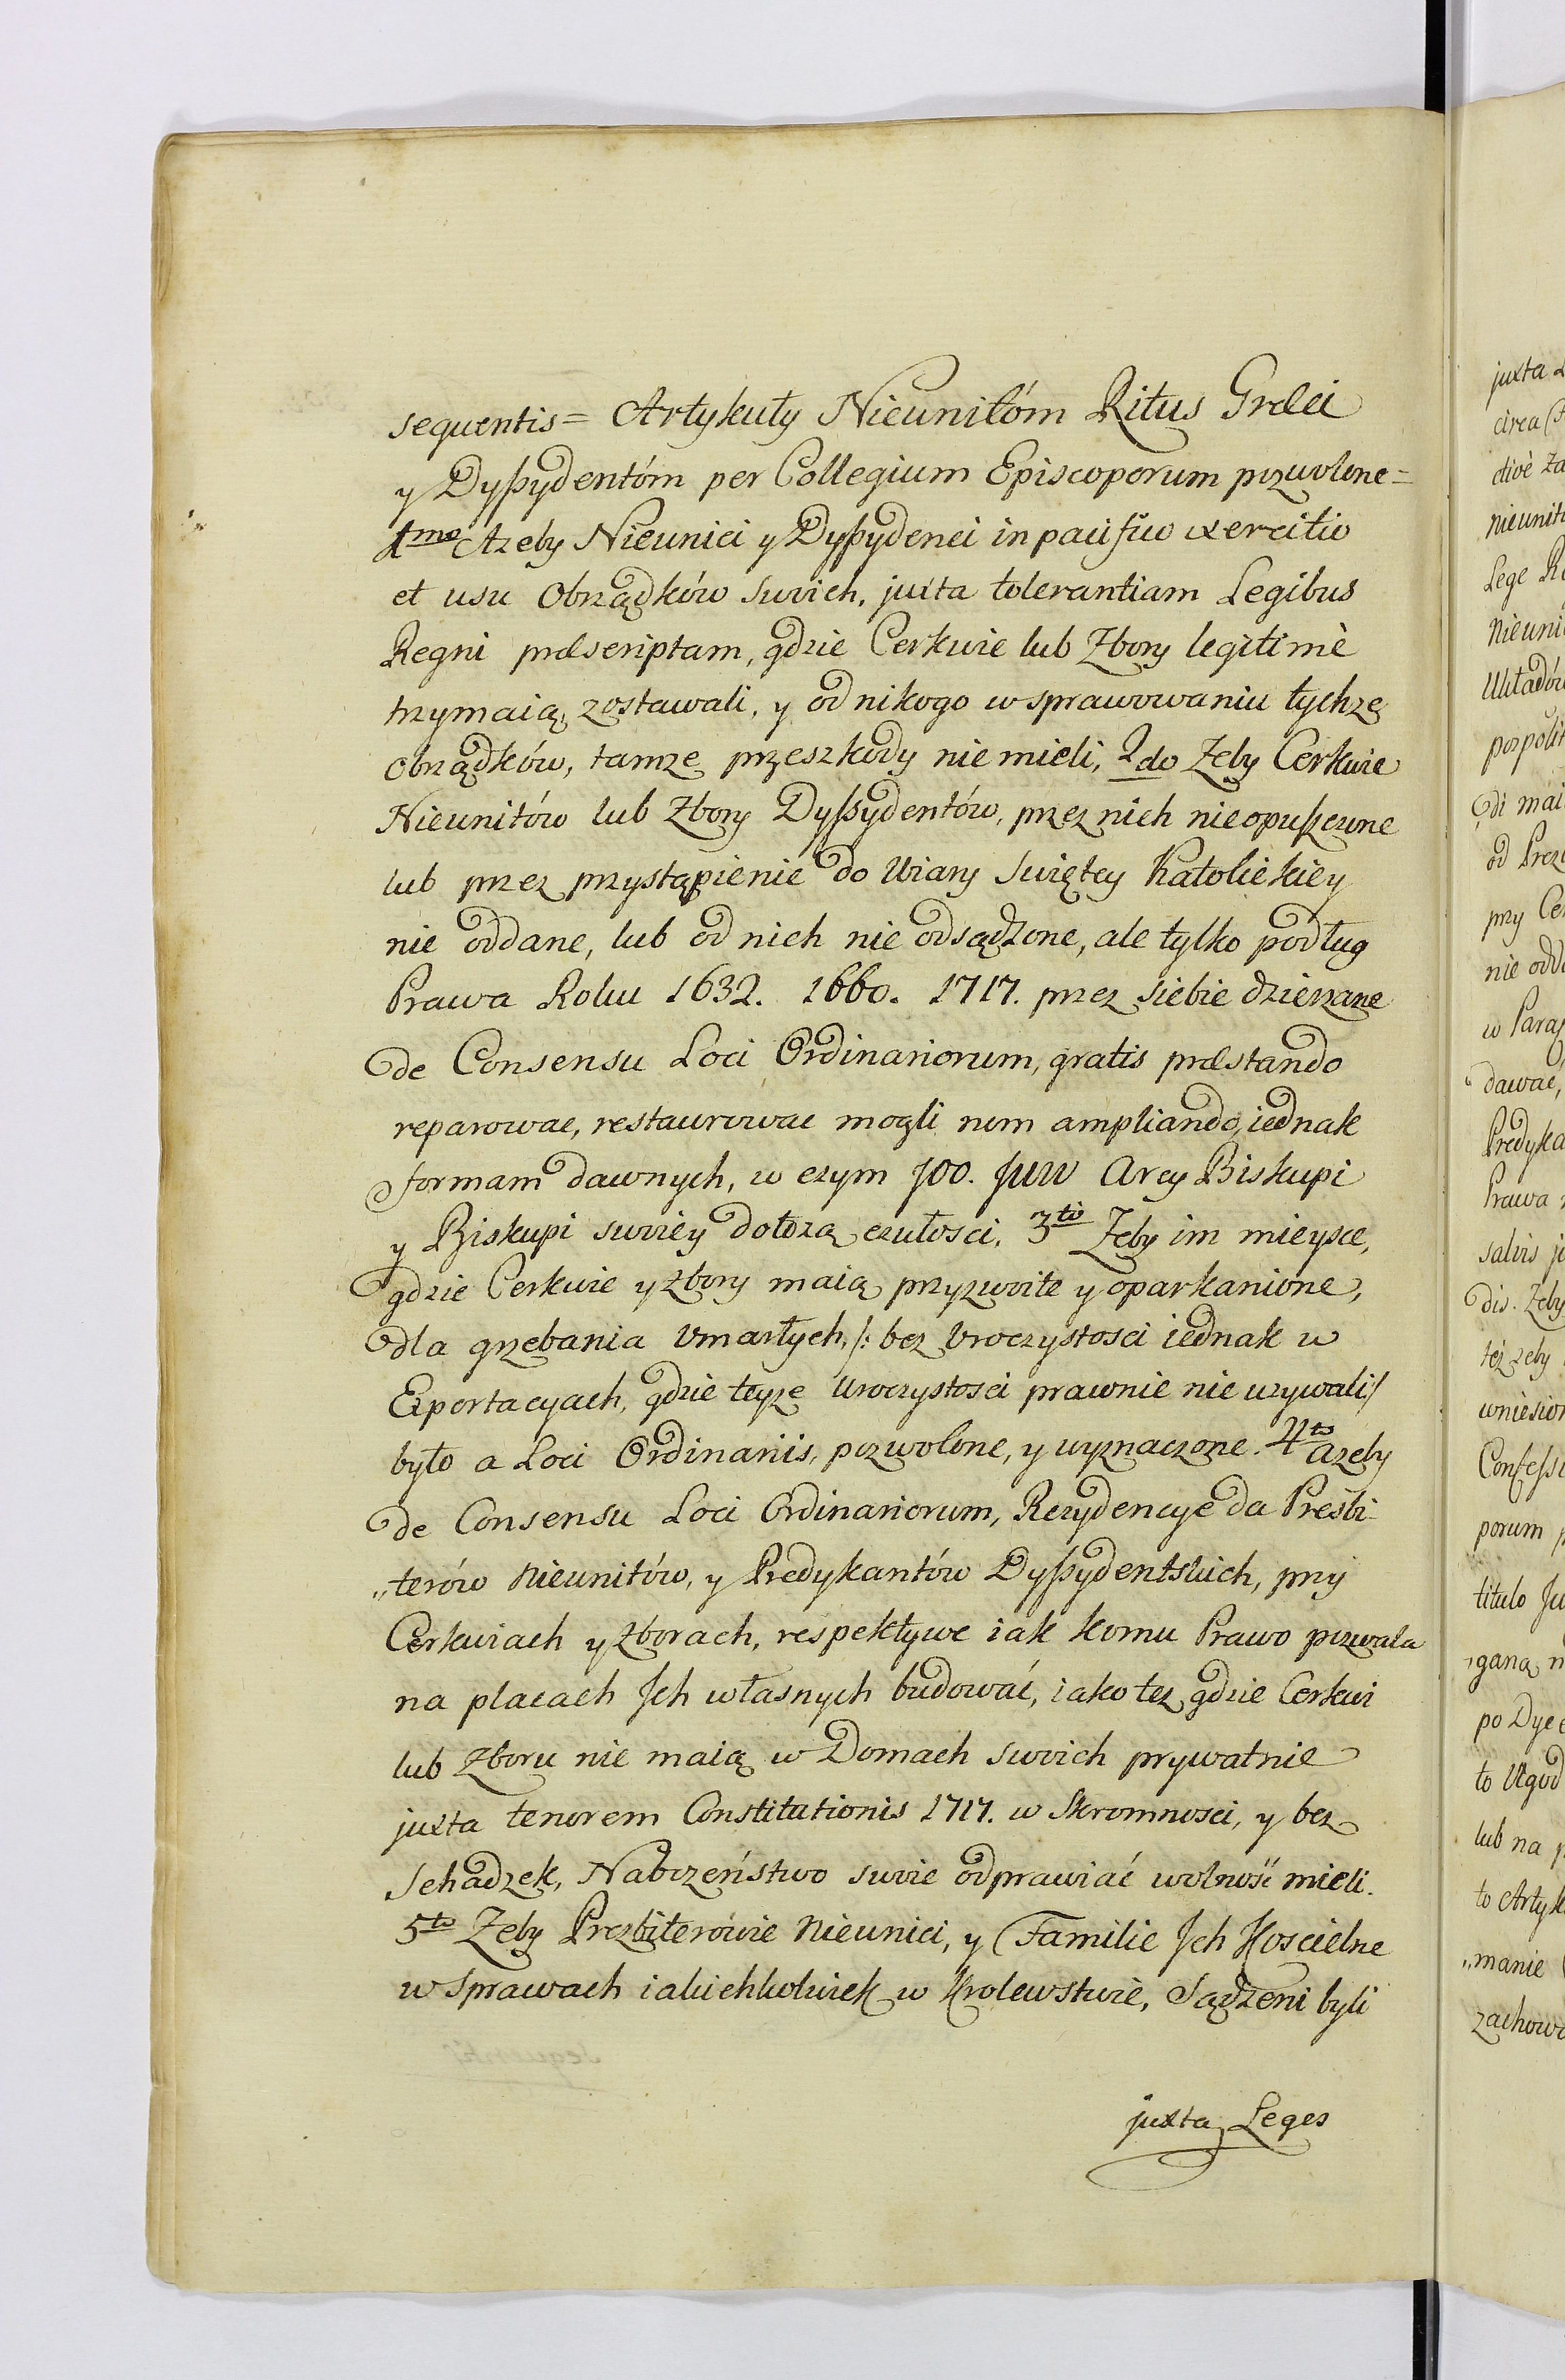 sequentis = Artykuły Nieunitóm Ritus Græci
y Dyssydentóm per Collegium Episcoporum pozwolone =
1mo Azeby Nieunici y Dyssydenci in pacifico exercitio
et usu Obrządków swoich, juxta tolerantiam Legibus
Regni præscriptam, gdzie Cerkwie lub Zbory legitimè
trzymaią, zostawali, y od nikogo w sprawowaniu tychze
obrządków, tamze przeszkody nie mieli, 2do Zeby Cerkwie
Nieunitów lub Zbory Dyssydentów, przez nich nieopuszczone
lub przez przystąpienie do Wiary Swiętey Katolickiey
nie oddane, lub od nich nie odsądzone, ale tylko podług
Prawa Roku 1632. 1660. 1717. przez siebie dzierzane
de Consensu Loci Ordinariorum, gratis præstando
reparowac, restaurowac mogli non ampliando, iednak
formam dawnych, w czym JOO. JWW Arcy Biskupi
y Biskupi swoiey dołozą czułosci, 3tio Zeby im mieysce,
gdzie Cerkwie y zbory maią przyzwoite y oparkanione,
dla grzebania Umarłych, /: bez Uroczystosci iednak w
Exportacyach, gdzie teyze Uroczystosci prawnie nie uzywali /
było a Loci Ordinariis, pozwolone, y wyznaczone. 4to azeby
de Consensu Loci Ordinariorum, Rezydencye da Presbi-
„terów Nieunitów, y Predykantów Dyssydentskich, przy
Cerkwiach y zborach, respektywe iak komu Prawo pozwala
na placach Jch własnych budować, iako tez gdzie Cerkwi
lub Zboru nie maią w Domach swoich prywatnie
juxta tenorem Constitutionis 1717. w Skromnosci, y bez
Schadzek, Nabozeństwo swoie odprawiać wolność mieli.
5to Zeby Prezbiterowie Nieunici, y Familie Jch Koscielne
w Sprawach iakichkolwiek w Krolewstwie, Sądzeni byli
juxta Leges